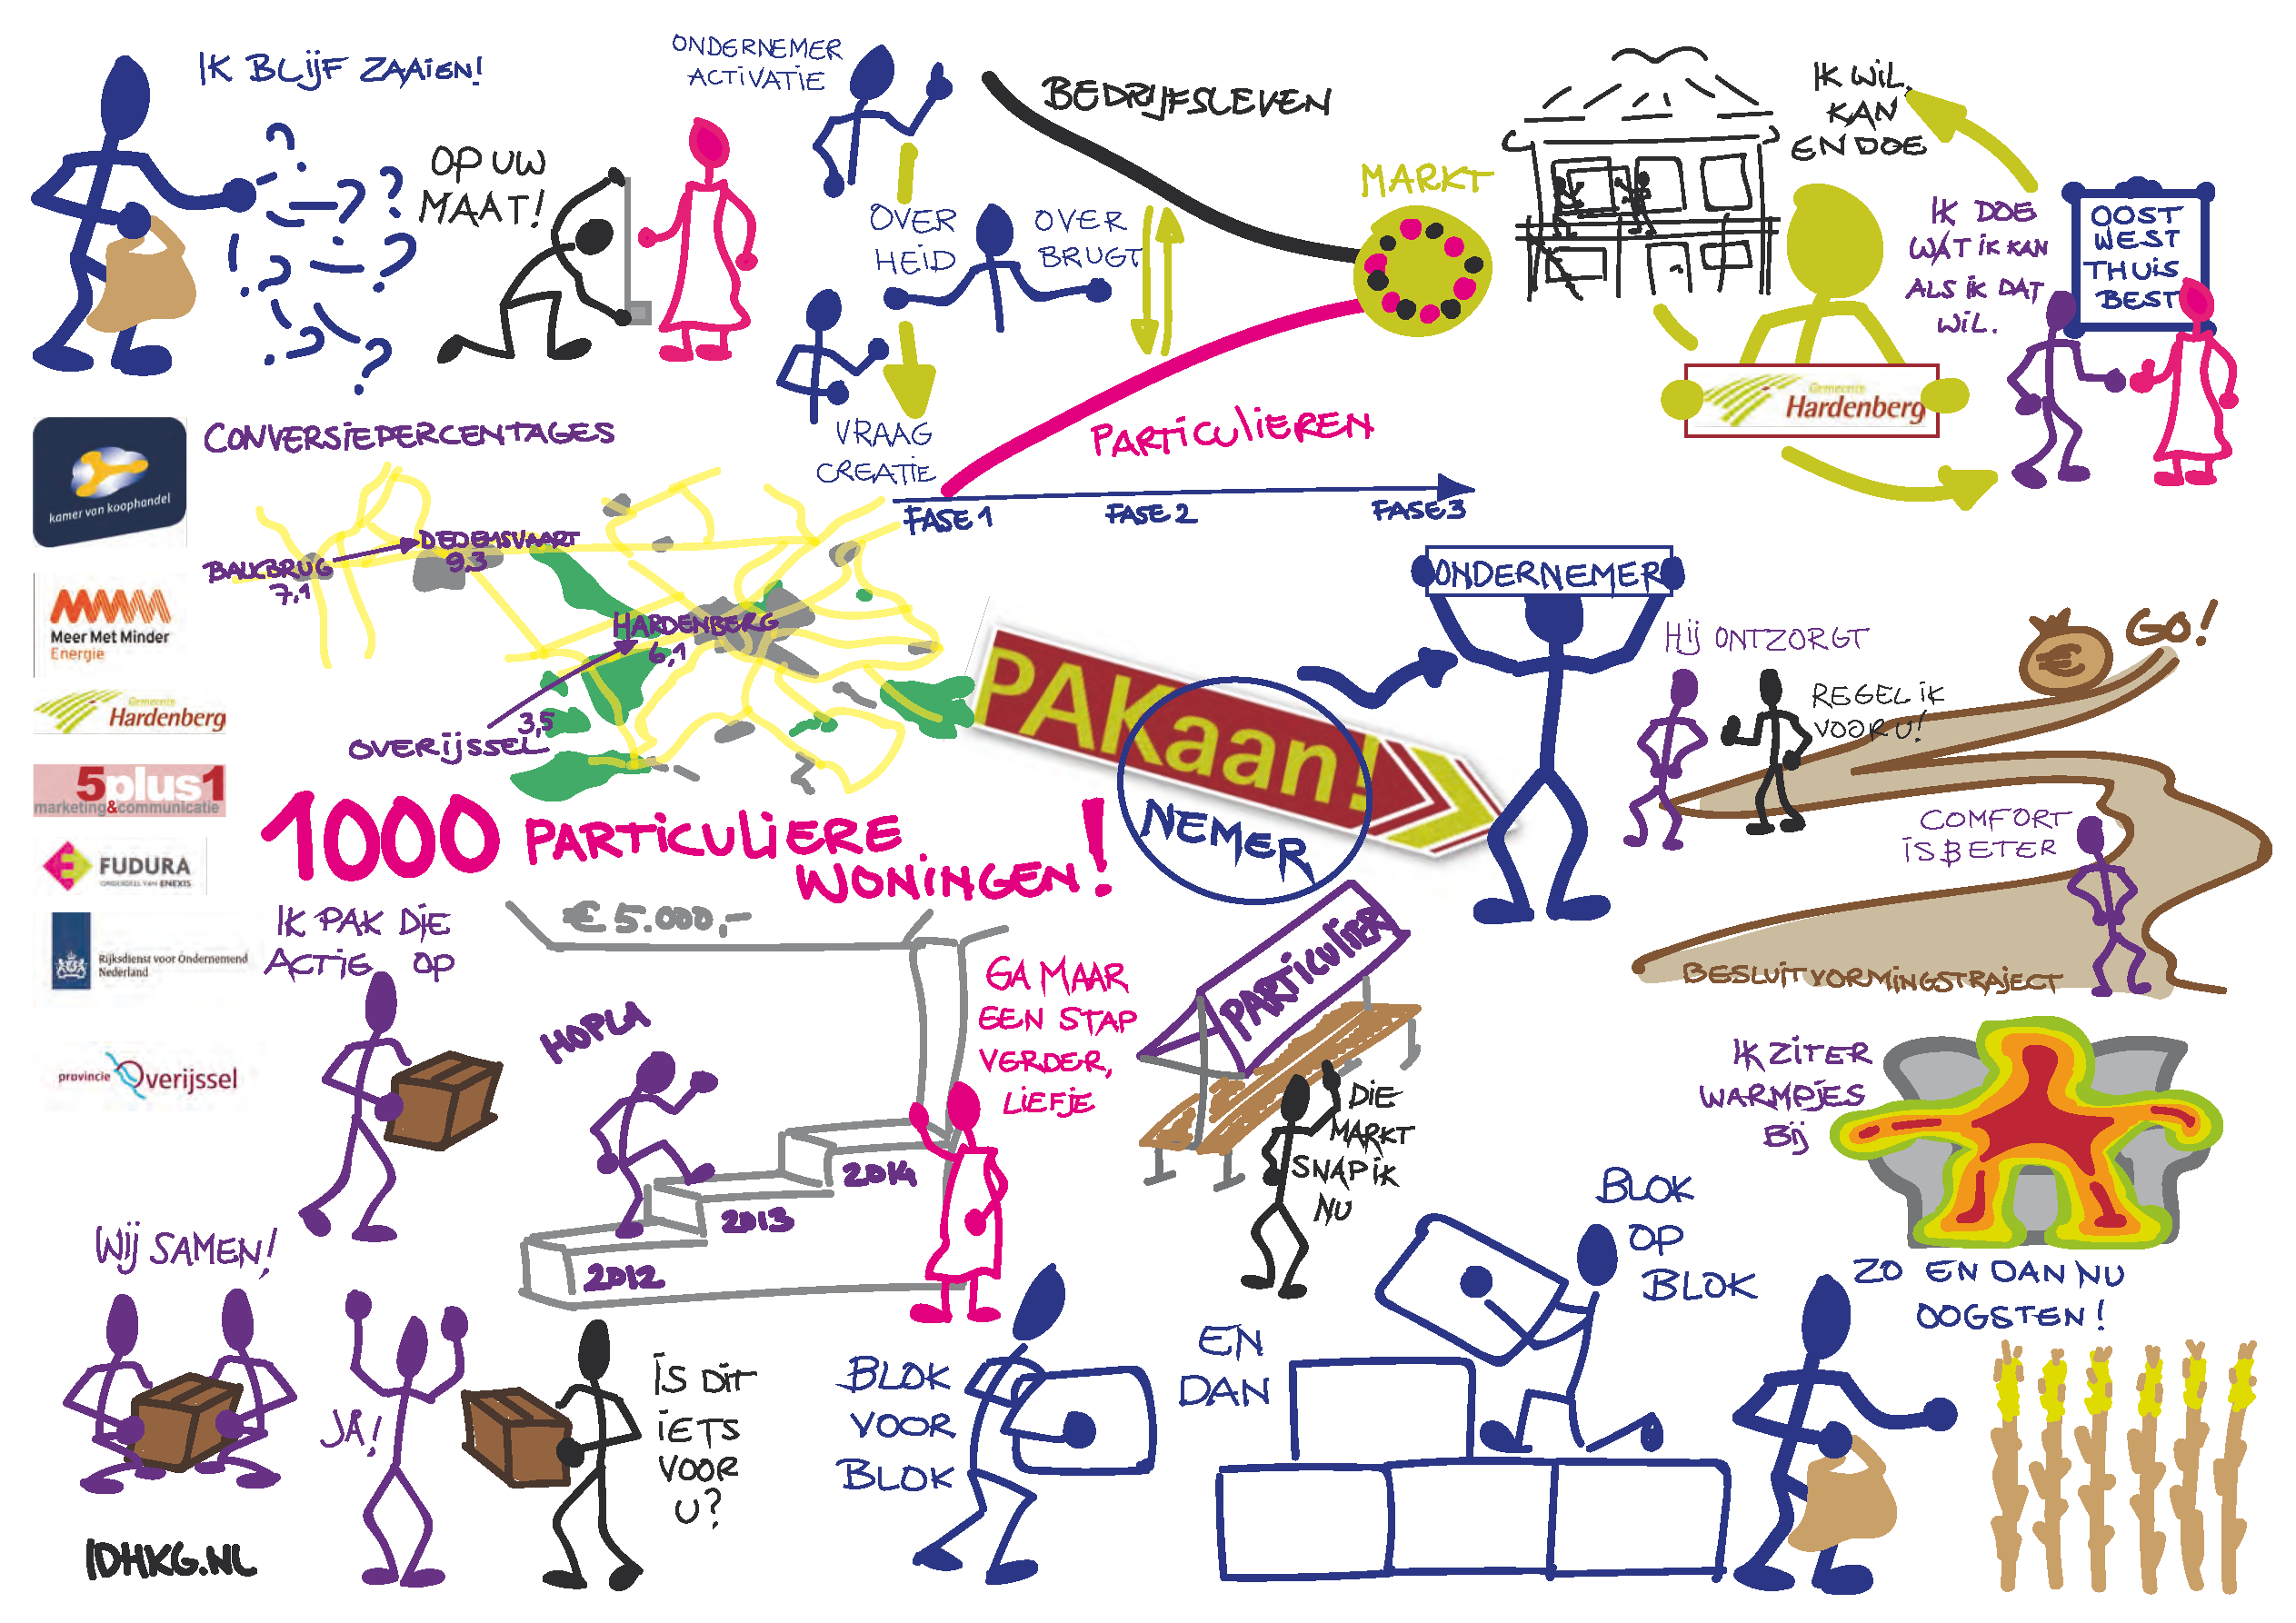 IK BLIJF ZAAIEN!
OP UW
MAAT!
ONDERNEMER
ACTIVATIE
OVER
HEID
OVER
BRUGT
VRAAG
CREATIE
BEDRIJFSLEVEN
MARKT
PARTICULIEREN
FASE 1
FASE 2
FASE 3
IK WIL,
KAN
EN DOE
IK DOE
WAT IK KAN
ALS IK DAT
WIL.
OOST
WEST
THUIS
BEST
Gemeente
Hardenberg
kamer van koophandel
CONVERSIEPERCENTAGES
BALKBRUG
7,1
DEDEMSVAART
9,3
HARDENBERG
6,1
3,5
OVERIJSSEL
Meer Met Minder
Energie
Gemeente
Hardenberg
5plus1
marketing&communicatie
FUDURA
ONDERDEEL VAN ENEXIS
Rijksdienst voor Ondernemend
Nederland
provincie Overijssel
1000 PARTICULIERE
WONINGEN!
PAKaan!
NEMER
ONDERNEMER
HIJ ONTZORGT
REGEL IK
VOOR U!
GO!
€
COMFORT
IS BETER
BESLUITVORMINGSTRAJECT
IK PAK DIE
ACTIE OP
€ 5.000,-
HOPLA
2012
2013
2014
GA MAAR
EEN STAP
VERDER,
LIEFJE
PARTICULIER
DIE
MARKT
SNAP IK
NU
IK ZIT ER
WARMPJES
BIJ
WIJ SAMEN!
JA!
IS DIT
IETS
VOOR
U?
BLOK
VOOR
BLOK
EN
DAN
BLOK
OP
BLOK
ZO EN DAN NU
OOGSTEN!
IDHKG.NL